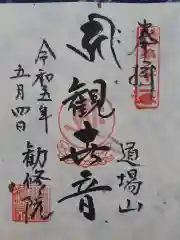 奉拝
道場山
観世音
令和五年
五月四日
勧修院